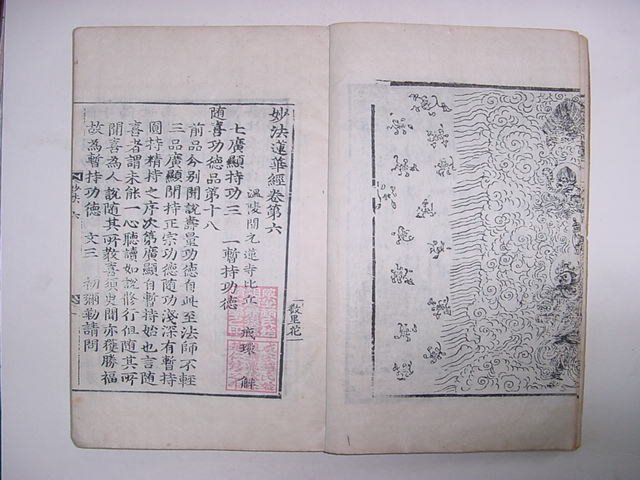 妙法蓮華經卷第六
溫陵開元蓮寺比丘 戒環 解
七廣顯持功三 一暫持功德
随喜功德品第十八
前品分別聞說壽量功德自此至法師不輕
三品廣顯聞持正宗功德随功淺深有暫持
圓持精持之序次第廣顯自暫持始也言随
喜者謂未能一心聽讀如說修行但随其所
聞喜爲人說随其所教喜須臾聞亦獲勝福
故爲暫持功德 文三 初彌勒請問